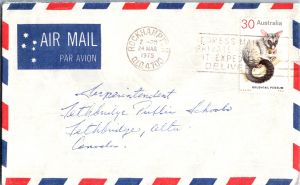 AIR MAIL
PAR AVION
ROCKHAMPTON
2-
24 MAR
1975
QLD 4700
ADDRESS MAIL
IT EXPED
DELIVE
30 Australia
BRUSHTAIL POSSUM
Superintendent
Lethbridge Public Schools
Lethbridge, Alta.
Canada.